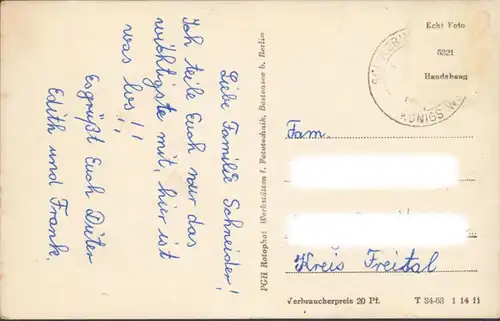 Liebe Familie Schneider!
Ich teile Euch nur das
wichtigste mit, hier ist
was los!!
Es grüßt Euch Dieter
Edith und Frank
PGH Rotophot Werkstätten f. Fototechnik, Bestensee b. Berlin
Echt Foto
5321
Handabzug
KÖNIGS W
Fam.
Kreis Freital
Verbraucherpreis 20 Pf.
T 34-63 1 14 11